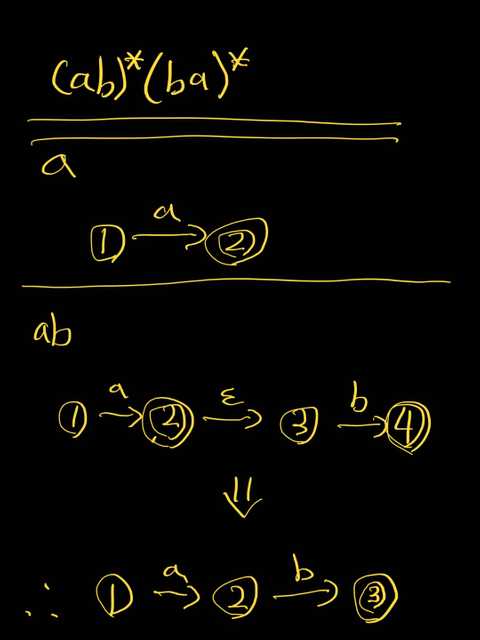 (ab)*(ba)*
a
1 a → 2
ab
1 a → 2 ε → 3 b → 4
⇓
∴ 1 a → 2 b → 3